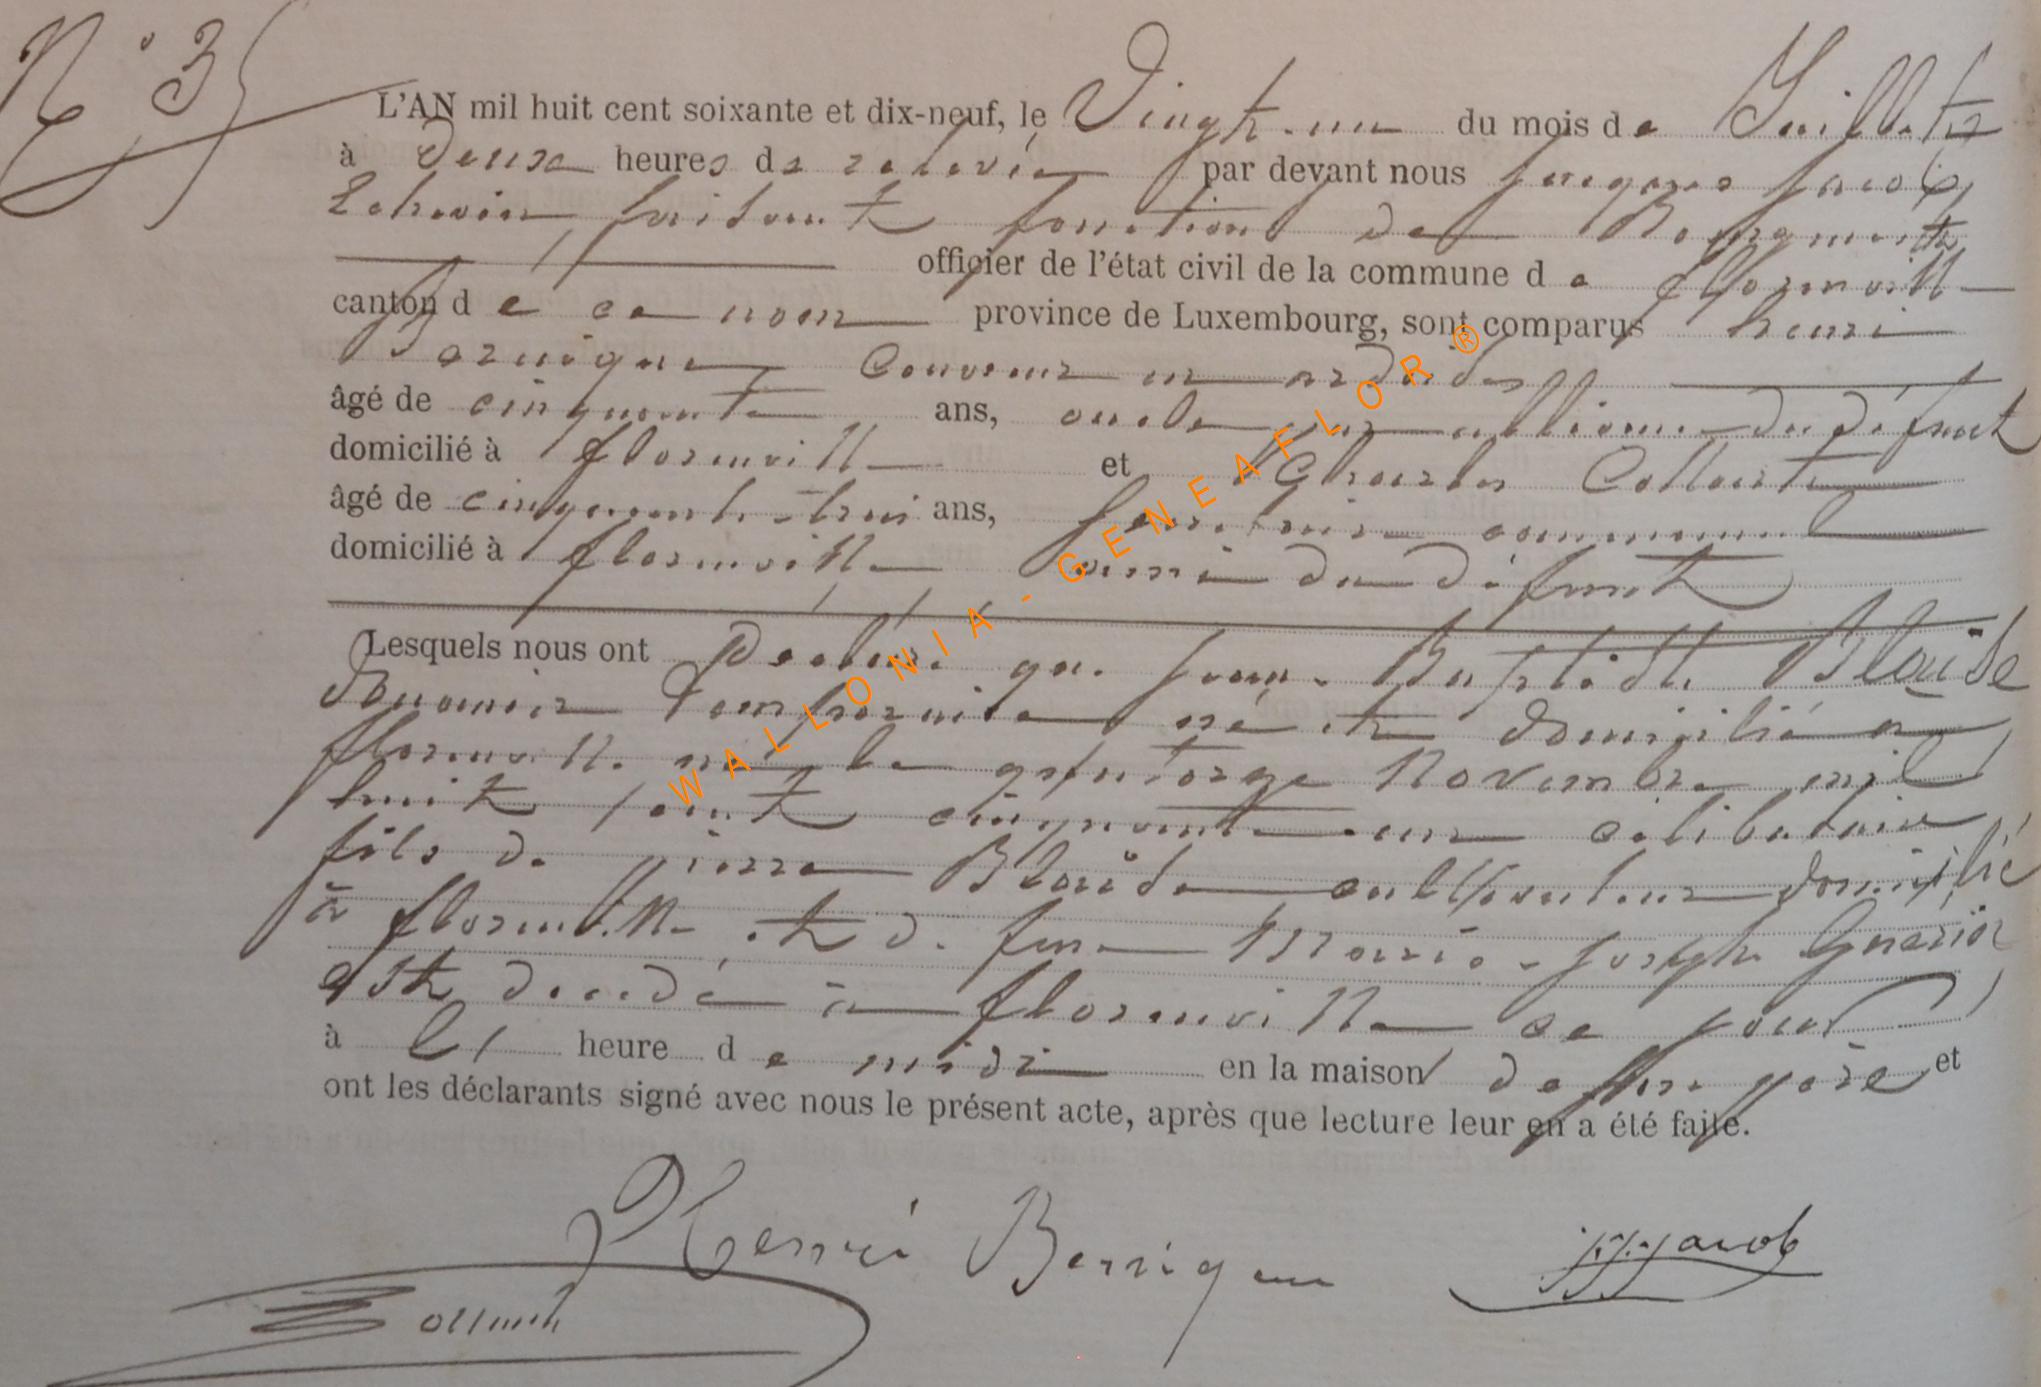 N° 35
L'AN mil huit cent soixante et dix-neuf, le Vingt-un du mois de Juillet
à Deux heures de relevée par devant nous Jacques Jacob
Echevin faisant fonction de Bourgmestre
officier de l'état civil de la commune de florenville
canton de ce nom province de Luxembourg, sont comparus henri
Bernique Couvreur en ardoises
âgé de cinquante ans, oncle par alliance du défunt
domicilié à florenville et Charles Collard
âgé de cinquante-trois ans, Secrétaire communal
domicilié à florenville ami du défunt
Lesquels nous ont Déclaré que Jean-Baptiste Blaise
Douanier né et domicilié à
florenville né le quatorze Novembre mil
huit cent cinquante-un célibataire
fils de pierre Blaise cultivateur domicilié
à florenville et de feue Marie-Joseph Guerin
est décédé à florenville ce jour
à heure de midi en la maison de son père et
ont les déclarants signé avec nous le présent acte, après que lecture leur en a été faite.
Henri Bernique
J.J. Jacob
WALLONIA-GENEAFLOR®